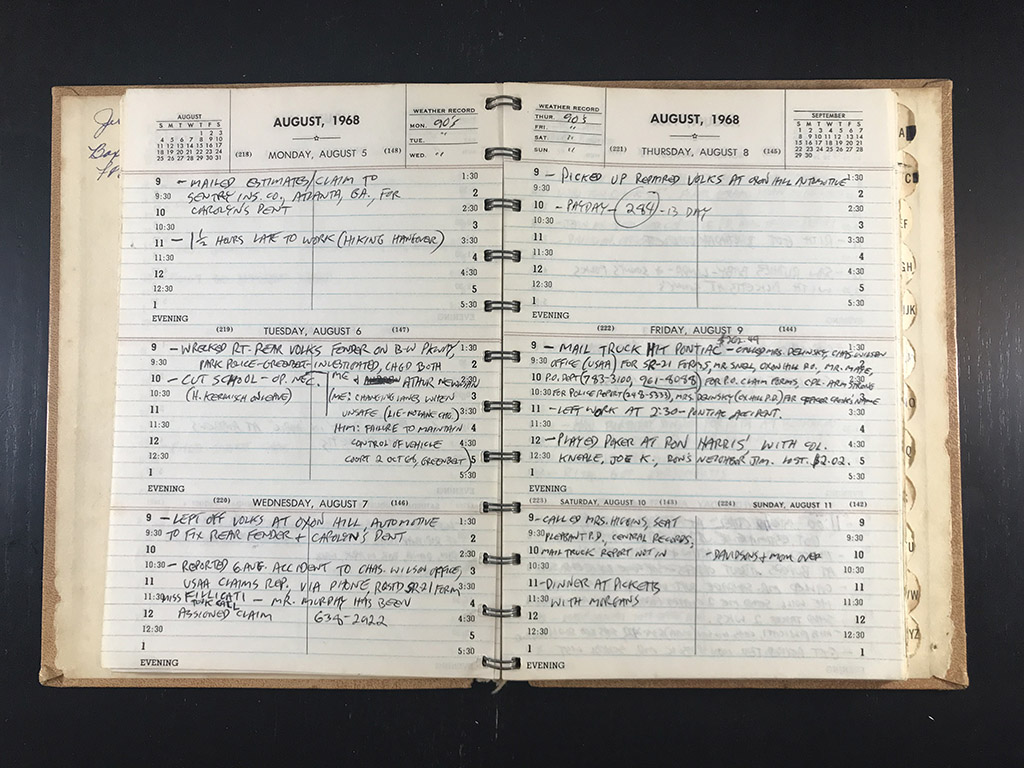 AUGUST
S M T W T F S
1 2 3
4 5 6 7 8 9 10
11 12 13 14 15 16 17
18 19 20 21 22 23 24
25 26 27 28 29 30 31
AUGUST, 1968
WEATHER RECORD
MON. 90's
TUE. "
WED. "
(218) MONDAY, AUGUST 5 (148)
9 - MAILED ESTIMATES/CLAIM TO 1:30
9:30 SENTRY INS. CO., ATLANTA, GA., FOR 2
10 CAROLYN'S DENT 2:30
10:30 3
11 - 1 1/2 HOURS LATE TO WORK (HIKING HANGOVER) 3:30
11:30 4
12 4:30
12:30 5
1 5:30
EVENING
(219) TUESDAY, AUGUST 6 (147)
9 - WRECKED RT. REAR VOLKS FENDER ON B-W PKWY, 1:30
9:30 PARK POLICE-GREENBELT-INVESTIGATED, CHGD BOTH 2
10 - CUT SCHOOL - OP. NEC. ME & ARTHUR NEWMAN 2:30
10:30 (H. KERMISCH ON LEAVE) (ME: CHANGING LANES WHEN 3
11 UNSAFE 3:30
11:30 HIM: FAILURE TO MAINTAIN 4
12 CONTROL OF VEHICLE 4:30
12:30 COURT 2 OCT 68, GREENBELT) 5
1 5:30
EVENING
(220) WEDNESDAY, AUGUST 7 (146)
9 - LEFT OFF VOLKS AT OXON HILL AUTOMOTIVE 1:30
9:30 TO FIX REAR FENDER & CAROLYN'S DENT 2
10 2:30
10:30 - REPORTED 6 AUG. ACCIDENT TO CHAS. WILSON OFFICE, 3
11 USAA CLAIMS REP, VIA PHONE, RQSTD SR-21 FORM 3:30
11:30 MISS FILLICATI - MR. MURPHY HAS BEEN 4
12 ASSIGNED CLAIM 638-2922 4:30
12:30 5
1 5:30
EVENING
WEATHER RECORD
THUR. 90's
FRI. "
SAT. "
SUN. "
AUGUST, 1968
SEPTEMBER
S M T W T F S
1 2 3 4 5 6 7
8 9 10 11 12 13 14
15 16 17 18 19 20 21
22 23 24 25 26 27 28
29 30
(221) THURSDAY, AUGUST 8 (145)
9 - PICKED UP REPAIRED VOLKS AT OXON HILL AUTOMOTIVE 1:30
9:30 2
10 - PAYDAY - 284 - 13 DAY 2:30
10:30 3
11 3:30
11:30 4
12 4:30
12:30 5
1 5:30
EVENING
(222) FRIDAY, AUGUST 9 (144)
$202.49
9 - MAIL TRUCK HIT PONTIAC - CALLED MRS. DELINSKY, CHAS. WILSON 1:30
9:30 OFFICE (USAA) FOR SR-21 FORMS, MR. SNELL, OXON HILL P.O., MR. 2
10 P.O. DEPT (783-3100, 961-8088) FOR P.O. CLAIM FORMS, CPL. ARMSTRONG 2:30
10:30 FOR POLICE REPORT (248-5333), MRS. DELINSKY FOR 3
11 - LEFT WORK AT 2:30 - PONTIAC ACCIDENT. 3:30
11:30 4
12 - PLAYED POKER AT RON HARRIS' WITH COL. 4:30
12:30 KNEALE, JOE K., RON'S NEIGHBOR JIM. LOST $2.02. 5
1 5:30
EVENING
(223) SATURDAY, AUGUST 10 (143)
9 - CALLED MRS. HIGGINS, SEAT
9:30 PLEASANT P.D., CENTRAL RECORDS;
10 MAIL TRUCK REPORT NOT IN
10:30
11 - DINNER AT PICKETTS
11:30 WITH MORGANS
12
12:30
1
EVENING
(224) SUNDAY, AUGUST 11 (142)
9
9:30
- DAVIDSONS & MOM OVER 10
10:30
11
11:30
12
12:30
1
EVENING
A
C
EF
GH
IJK
TU
VW
XYZ